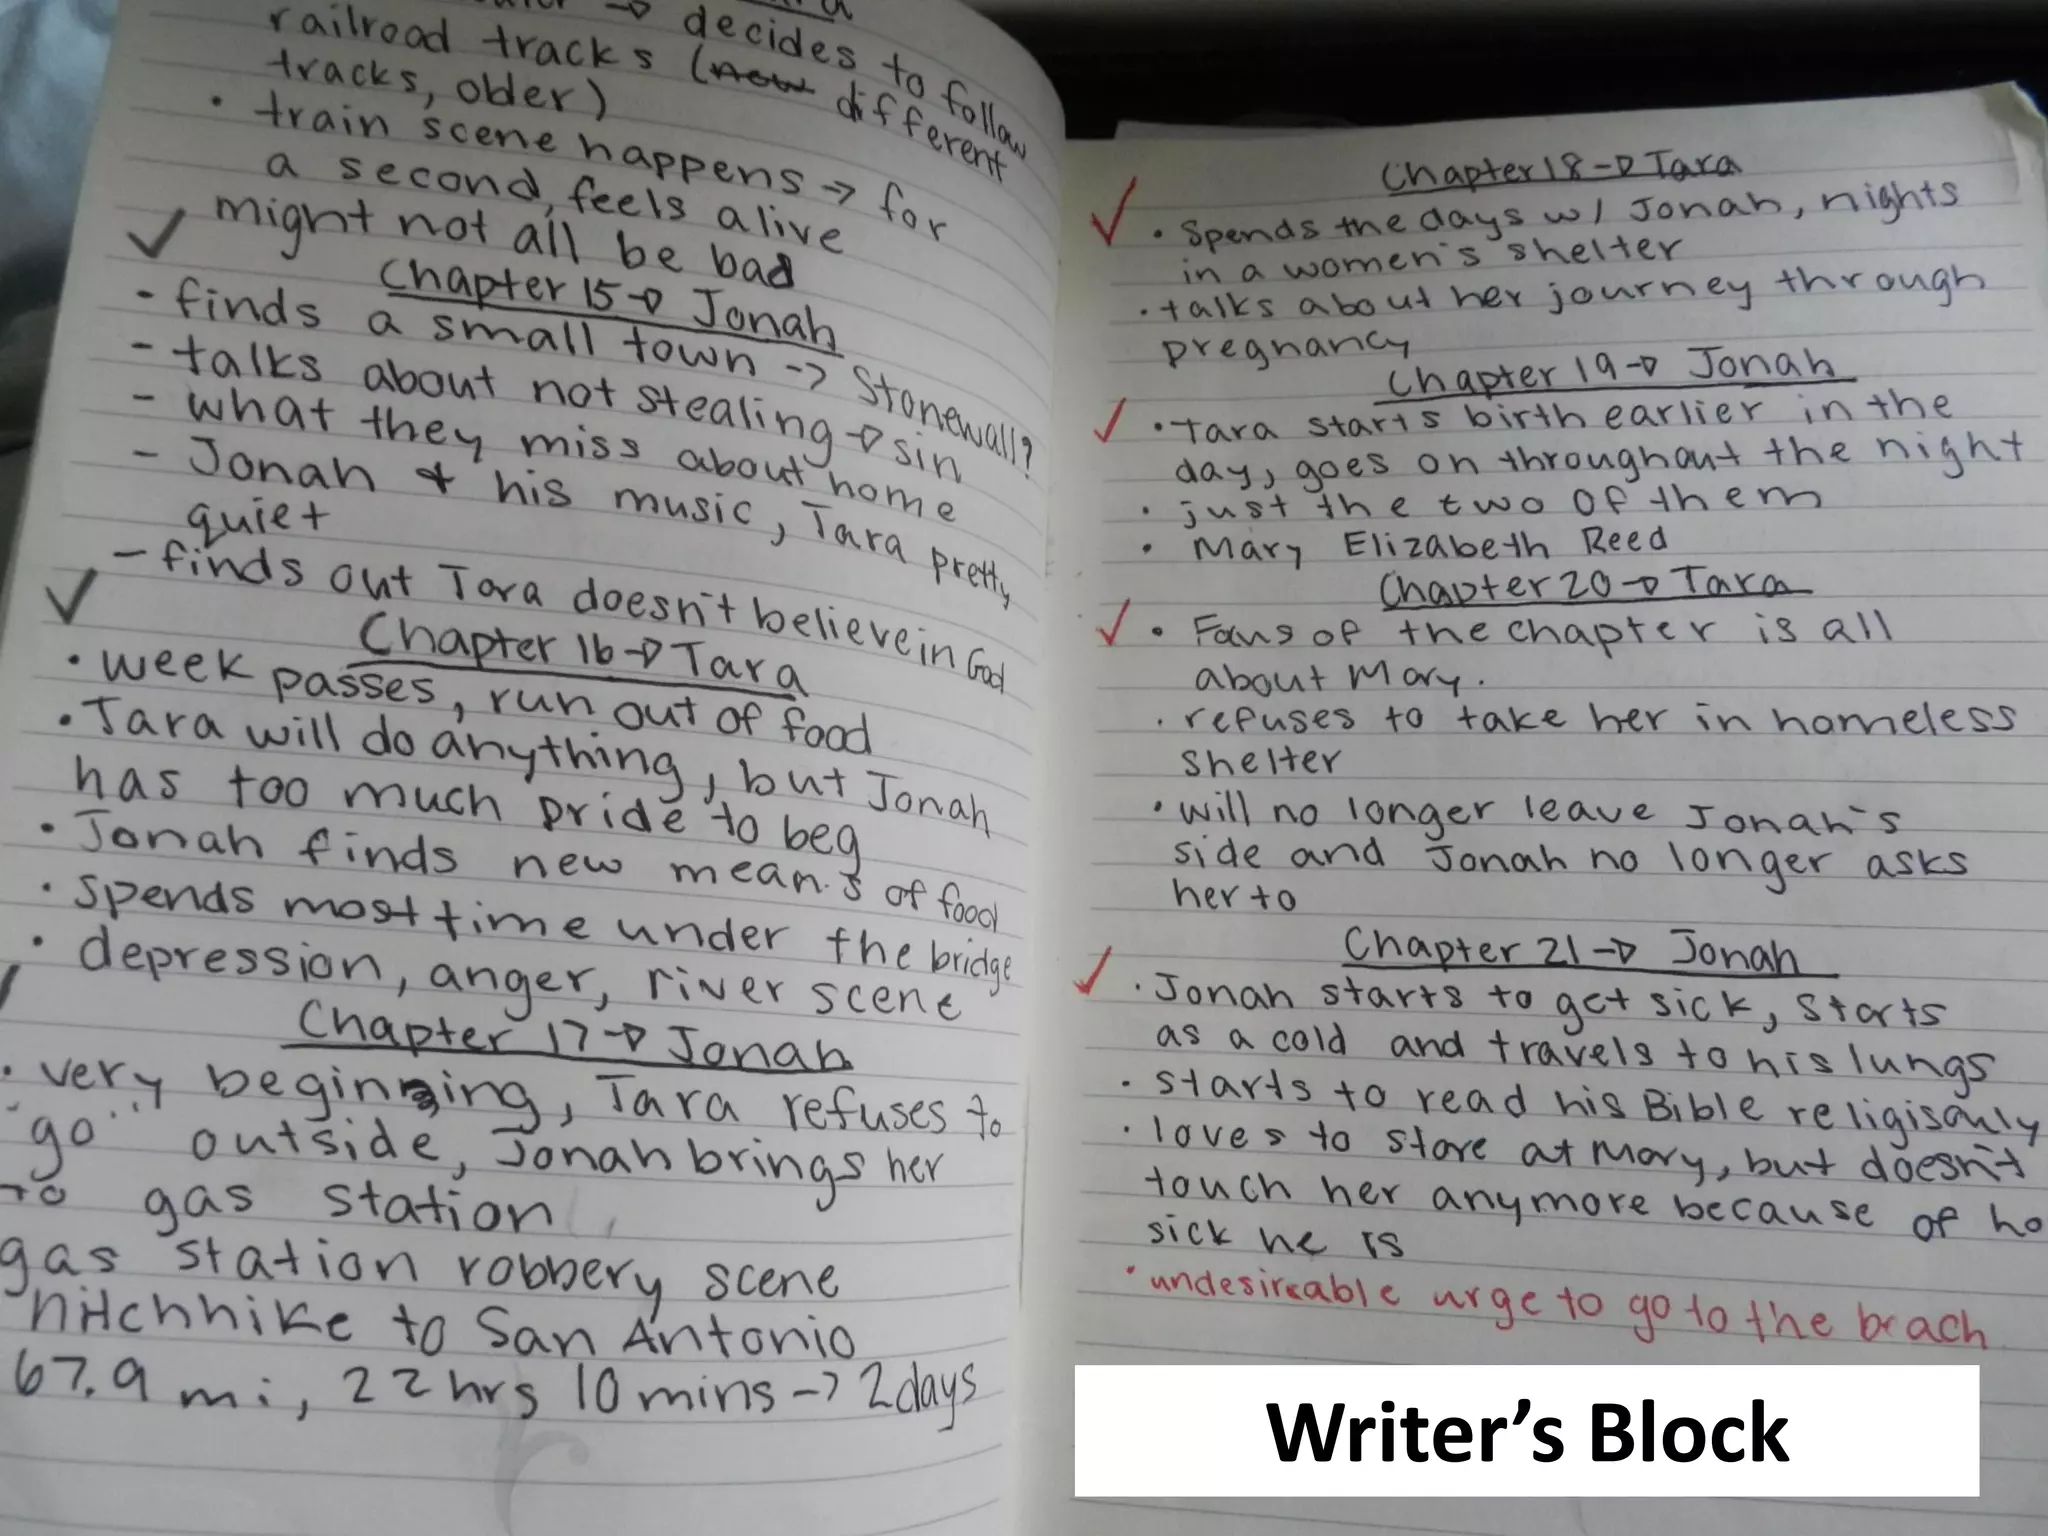 decides to follow
railroad tracks (now different
tracks, older)
• train scene happens → for
a second, feels alive
might not all be bad
✓
Chapter 15 → Jonah
- finds a small town → Stonewall?
- talks about not stealing → sin
- what they miss about home
- Jonah & his music, Tara pretty
quiet
- finds out Tara doesn't believe in God
✓
Chapter 16 → Tara
• week passes, run out of food
• Tara will do anything, but Jonah
has too much pride to beg
• Jonah finds new means of food
• spends most time under the bridge
• depression, anger, river scene
Chapter 17 → Jonah
• very beginning, Tara refuses to
"go" outside, Jonah brings her
to gas station
gas station robbery scene
hitchhike to San Antonio
67.9 mi, 22 hrs 10 mins → 2 days
Chapter 18 → Tara
✓ • Spends the days w/ Jonah, nights
in a women's shelter
• talks about her journey through
pregnancy
Chapter 19 → Jonah
✓ • Tara starts birth earlier in the
day, goes on throughout the night
• just the two of them
• Mary Elizabeth Reed
Chapter 20 → Tara
✓ • Focus of the chapter is all
about Mary.
• refuses to take her in homeless
shelter
• will no longer leave Jonah's
side and Jonah no longer asks
her to
Chapter 21 → Jonah
✓ • Jonah starts to get sick, starts
as a cold and travels to his lungs
• starts to read his Bible religisouly
• loves to stare at Mary, but doesn't
touch her anymore because of ho
sick he is
• undesireable urge to go to the beach
Writer's Block